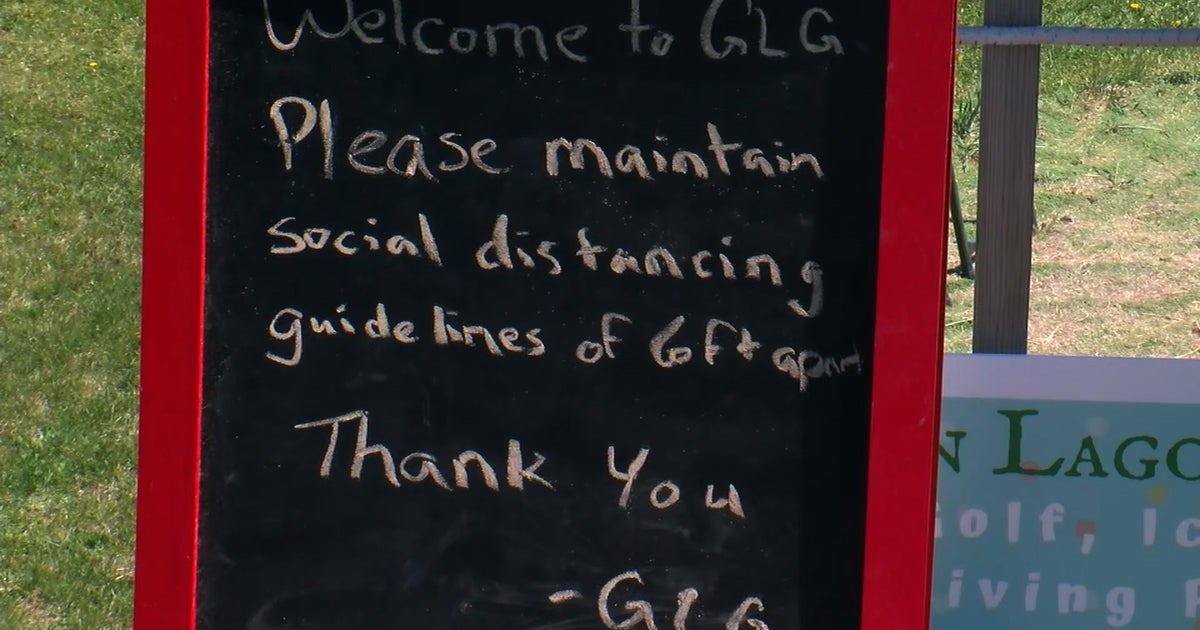 Welcome to GLG
Please maintain
social distancing
guidelines of 6ft apart
Thank You
- GLG
N LAGO
Golf, Ic
iving